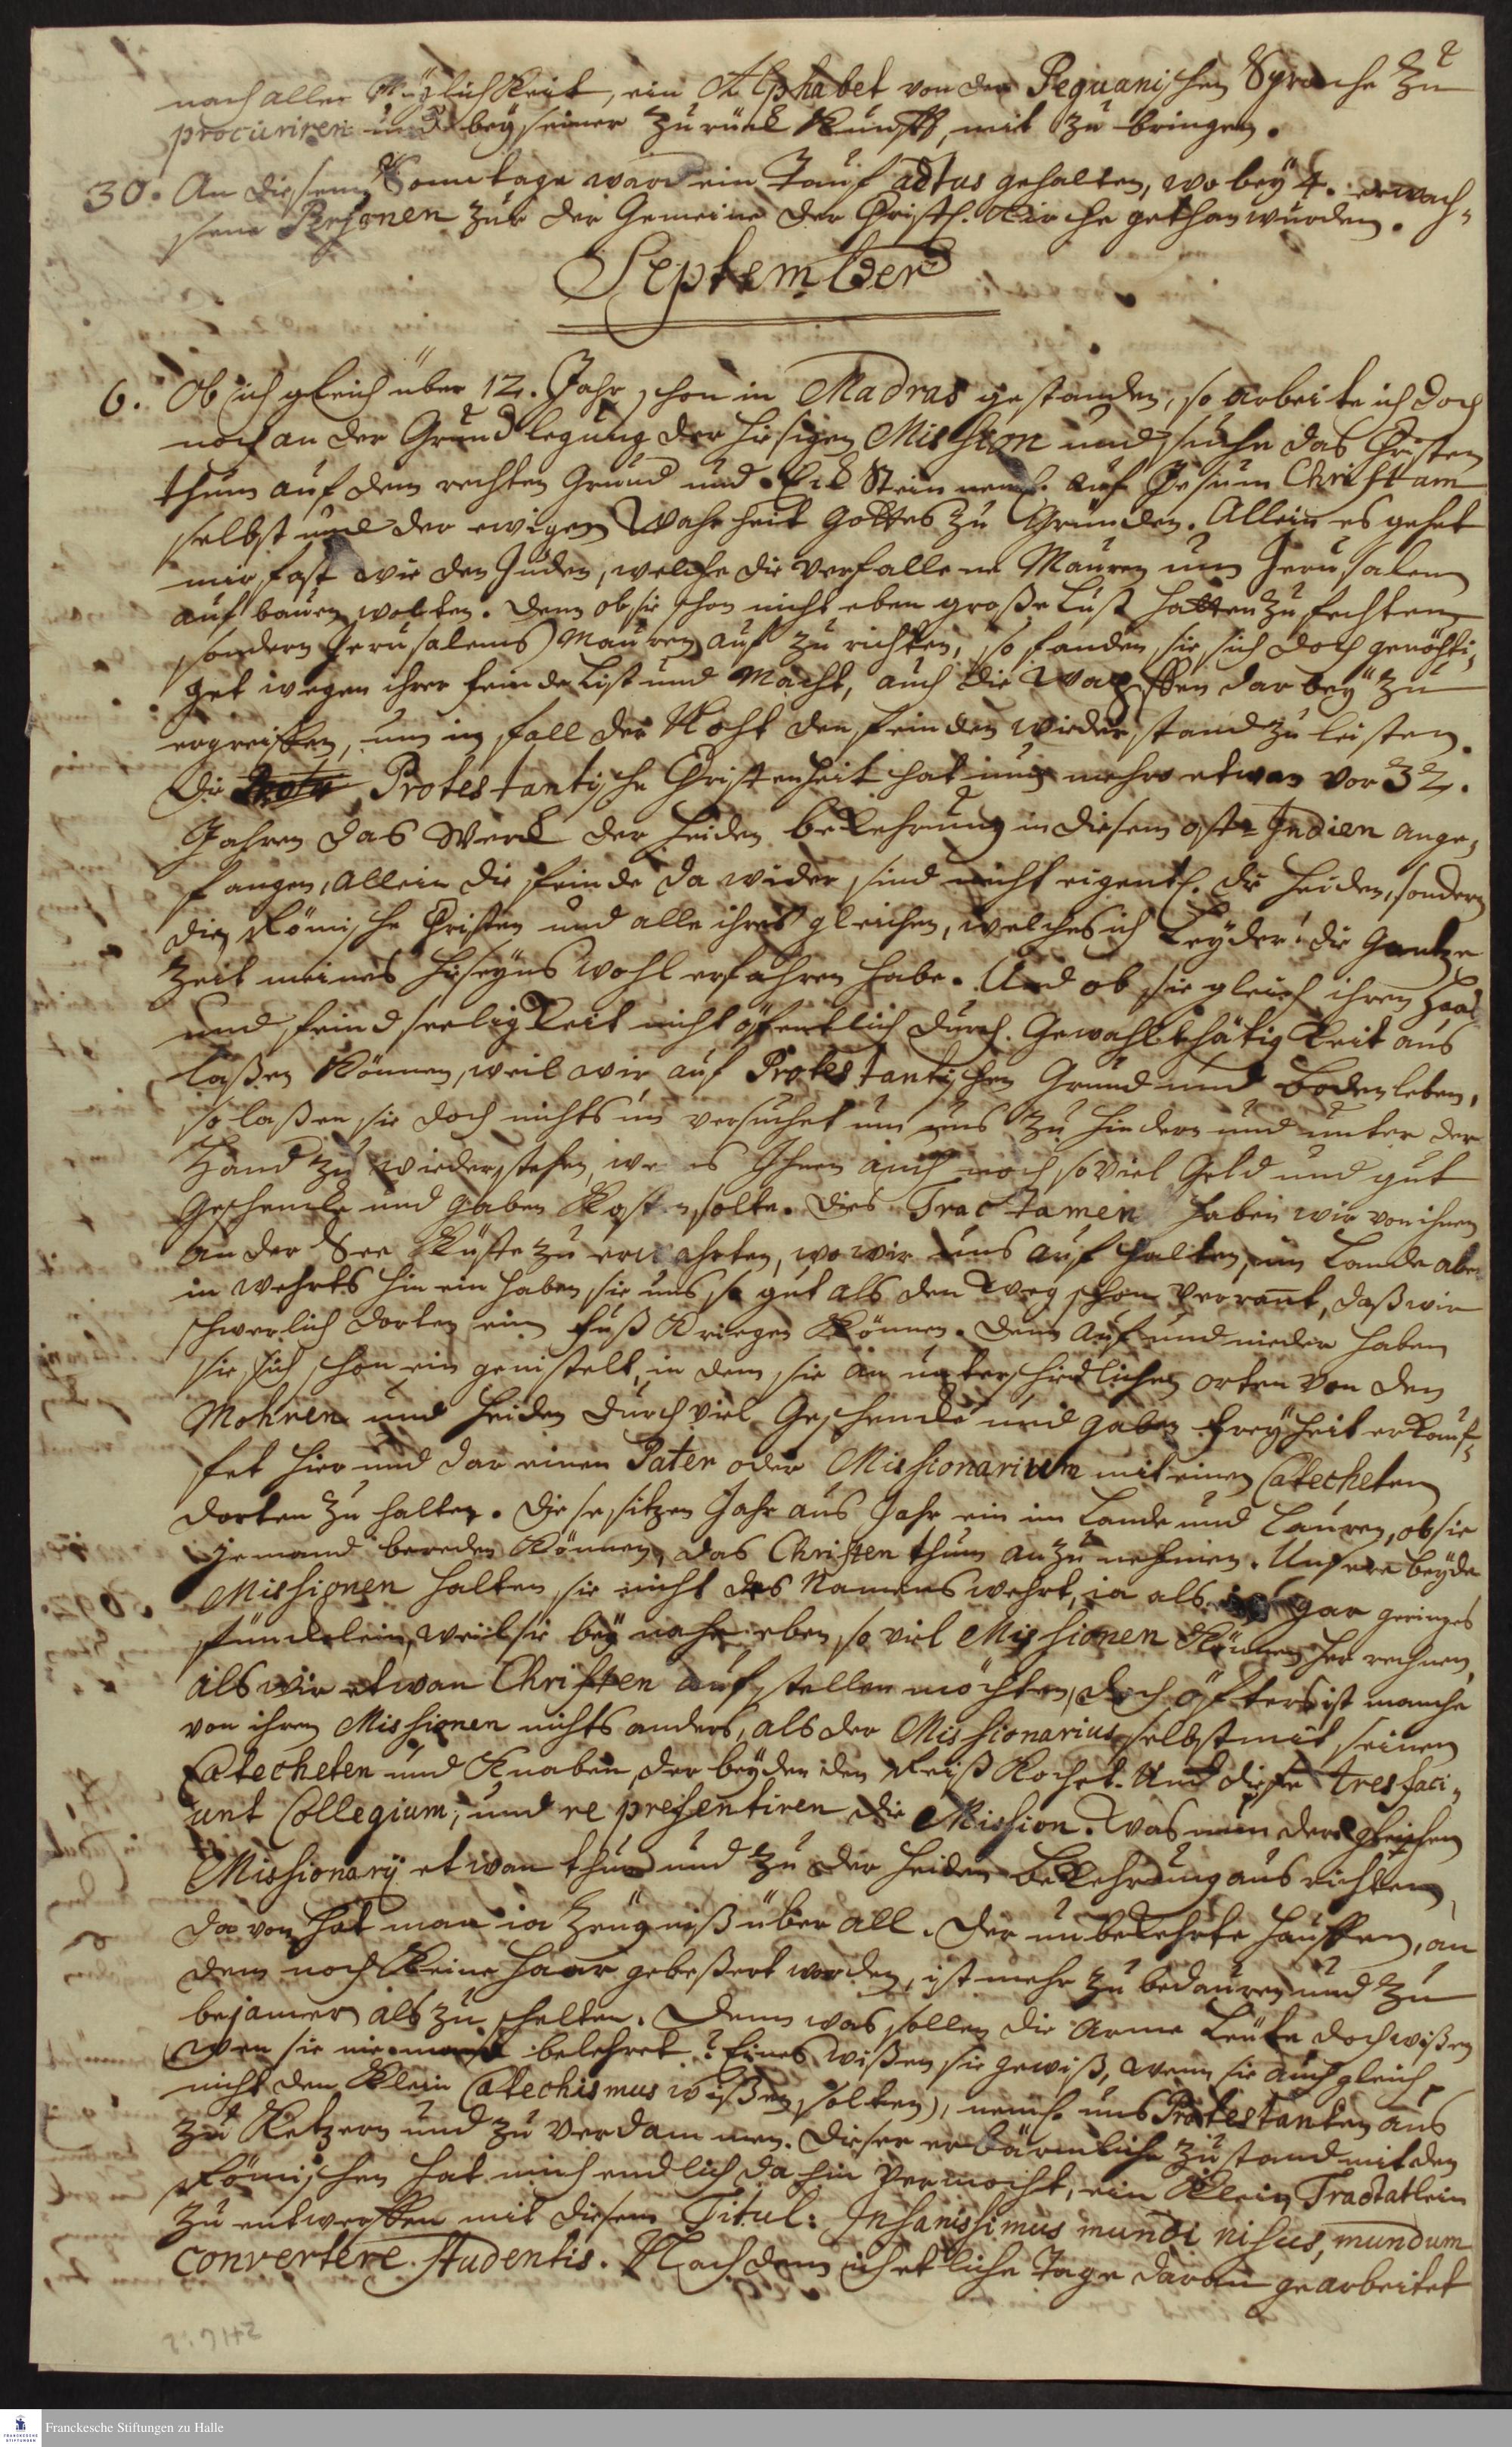 nach aller Mögligkeit, ein Alphabet von der Peguanischen Sprache zu
procuriren und bey seiner Zurück Kunfft, mit zu bringen.
30. An diesem Sonntage ward ein Tauf actus gehalten, wo bey 4. erwach-
sene Persohnen zu der Gemeine der Christl. Kirche gethan wurden.
September
6. Ob ich gleich über 12. Jahr schon in Madras gestanden, so arbeite ich doch
noch an der Grundlegung der hiesigen Mission und suche das Christen
thum auf dem rechten Grund und Eck Stein neml. auf Jesum Christum
selbst und der ewigen Wahrheit Gottes zu Gründen. Allein es gehet
mir fast wie den Juden, welche die verfallene Mauren um Jerusalem
auf bauen wolten. Denn ob sie schon nicht eben große Lust hatten zu fechten
sondern Jerusalems Mauren auf zu richten, so fanden sie sich doch genöthi-
get wegen ihrer Feinde List und Macht, auch die Waffen dar bey zu
ergreiffen, um im fall der Noht den Feinden wieder stand zu leisten.
Die Protestantische Christenheit hat nun mehro etwan vor 32.
Jahren das Werck der Heiden bekehrung in diesem Ost-Indien ange-
fangen, allein die Feinde da wider sind nicht eigentl. die Heiden, sondern
die Römische Christen und alle ihres gleichen, welches ich Leyder! die Gantze
Zeit meines hierseyns wohl erfahren habe. Und ob sie gleich ihren Haß
und Feindseeligkeit nicht öffentlich durch Gewahltthätigkeit aus
laßen können, weil wir auf Protestantischen Grund und Boden leben,
so laßen sie doch nichts un versuchet um uns zu hindern und unter der
Hand zu wiederstehen, wenn es Ihnen auch noch so viel Geld und gut
Geschencke und Gaben kosten solte. Dies Tractamen haben wir von ihnen
an der See Küste zu erwahrten, wo wir uns auf halten, im Lande aber
in wehrts hin ein haben sie uns so gut als den Weg schon verrant, daß wir
schwerlich dorten ein Fuß kriegen können. Denn auf und nieder haben
sie sich schon ein genistelt, in dem sie an unterschiedlichen orten von den
Mohren und Heiden durch viel Geschencke und gaben Freyheit erkauf-
fet hier und dar einen Pater oder Missionarium mit einen Catecheten
dorten zu halten. Diese sitzen Jahr aus Jahr ein im Lande und lauren, ob sie
jemand bereden können, das Christen thum anzunehmen. Unsere beyde
Missionen halten sie nicht des Namens wehrt, ia als gar geringes
stündelein, weil sie bey nahe eben so viel Missionen können her rechnen,
als wir etwan Christen aufstellen möchten, doch öfters ist manche
von ihren Missionen nichts anders, als der Missionarius selbst mit seinem
Catecheten und Knaben, der beyden den Reiß kochet. Und diese tres faci-
unt Collegium, und represenstiren die Mission. Was nun der gleichen
Missionarij etwan thun und zu der Heiden Bekehrung ausrichten,
da von hat man ia Zeugniß über all. Der unbekehrte Hauffen, an
dem noch keine Haar gebeßert worden, ist mehr zu bedauren und zu
bejamern als zu schelten. Denn was sollen die arme Leute doch wißen
wen sie niemand belehret? Eines wißen sie gewiß, wenn sie auch gleich
nicht den Klein Catechismus wißen solten, neml. uns Protestanten aus
zu Ketzern und zu verdammen. Dieser erbärmliche Zustand mit den
Römischen hat mich endlich da hin vermocht, ein klein Tractatlein
zu entwerffen mit diesem Titul: Insanissimus mundi nisus, mundum
convertere studentis. Nach dem ich etliche Tage daran gearbeitet
Franckesche Stiftungen zu Halle